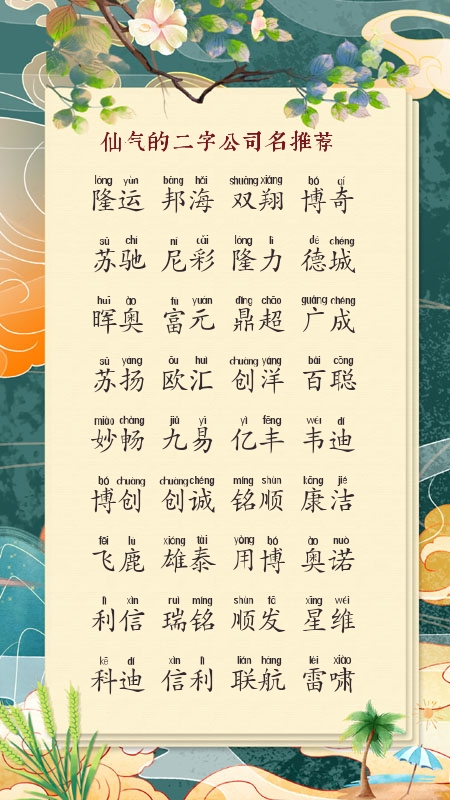 仙气的二字公司名推荐
lóng yùn bāng hǎi shuāng xiáng bó qí
隆运 邦海 双翔 博奇
sū chí ní cǎi lóng lì dé chéng
苏驰 尼彩 隆力 德城
huī ào fù yuán dǐng chāo guǎng chéng
晖奥 富元 鼎超 广成
sū yáng ōu huì chuàng yáng bǎi cōng
苏扬 欧汇 创洋 百聪
miào chàng jiǔ yì yì fēng wéi dí
妙畅 九易 亿丰 韦迪
bó chuàng chuàng chéng míng shùn kāng jié
博创 创诚 铭顺 康洁
fēi lù xióng tài yòng bó ào nuò
飞鹿 雄泰 用博 奥诺
lì xìn ruì míng shùn fā xīng wéi
利信 瑞铭 顺发 星维
kē dí xìn lì lián háng léi xiào
科迪 信利 联航 雷啸